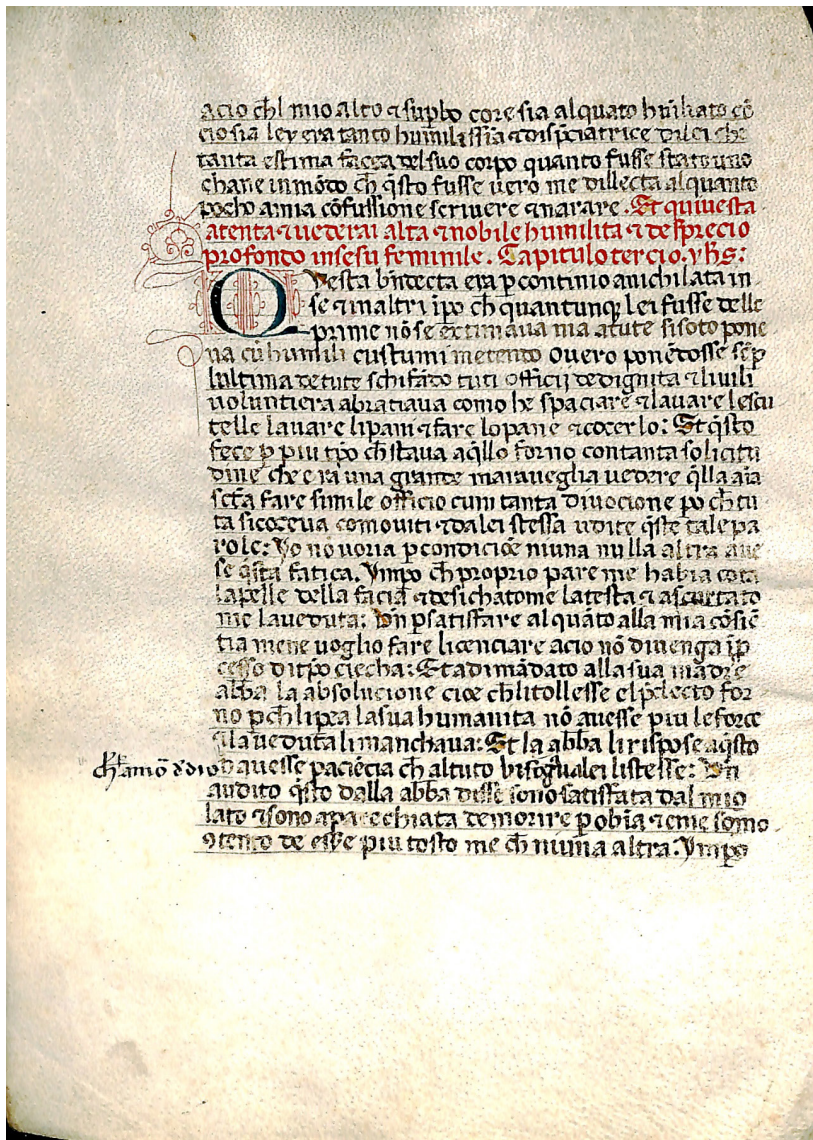 acio ch̄l mio alto ⁊ sup̱bo core sia alquāto humiliato cō
cio sia lev era tanto humilissīa ⁊ disp̄ciatrice di lei che
tanta estima facea del suo corpo quanto fusse stato uno
chane in mōdo ch̄ q̄sto fusse vero me dillecta alquanto
pocho a mia cōfussione scrivere ⁊ narare . Et qui vesta
atenta ⁊ vederai alta ⁊ nobile humilita ⁊ desprecio
profondo in sesu feminile . Capitulo tercio . yhs :
Questa bn̄decta era p̱ continio anichilata in
se ⁊ in altri īpo ch̄ quantunq̱ lei fusse delle
prime nō se extimava ma a tute si soto pone
va cū humili custumi metendo overo ponēdosse sēp̱
lultima de tute schifādo tuti officij de dignita ⁊ li vili
voluntiera abratiava como he spaciare ⁊ lavare le scu
telle lavare li pani ⁊ fare lo pane ⁊ cocerlo : Et q̄sto
fece p̱ piu tp̄o ch̄ stava a q̄llo forno con tanta solicitu
dine che era una grande maraveglia vedere q̄lla aīa
sc̄ta fare simile officio cum tanta divocione po ch̄ tu
ta si coceva como viti ⁊ da lei stessa udite q̄ste tale pa
role : Yo nō voria p̱ condiciōe niuna nulla altra ave
se q̄sta fatica . Ympo ch̄ proprio pare me habia cota
la pelle della facia ⁊ desichatome la testa ⁊ ascurtato
me la veduta : Un̄ p̱ satisfare alquāto alla mia cōsiē
tia me ne voglio fare licenciare acio nō divenga īp̱
cesso di tp̄o ciecha : Et adimādato alla sua madre
abb̄a la absolucione cioe ch̄ li tollesse el p̄decto for
no p̱ch̄ li pea la sua humanita nō avesse piu le force
⁊ la veduta li manchava : Et la abb̄a li rispose a q̄sto
ch̄ p̱ amō d̄ dio
havesse paciēcia ch̄ al tuto bisogn̄ a lei li stesse : Un̄
audito q̄sto dalla abb̄a disse sono satisfata dal mio
lato ⁊ sono aparechiata de morire p̱ obīa ⁊ cme somo
ꝯtento de ess̄e piu tosto me ch̄ niuna altra : Ympo